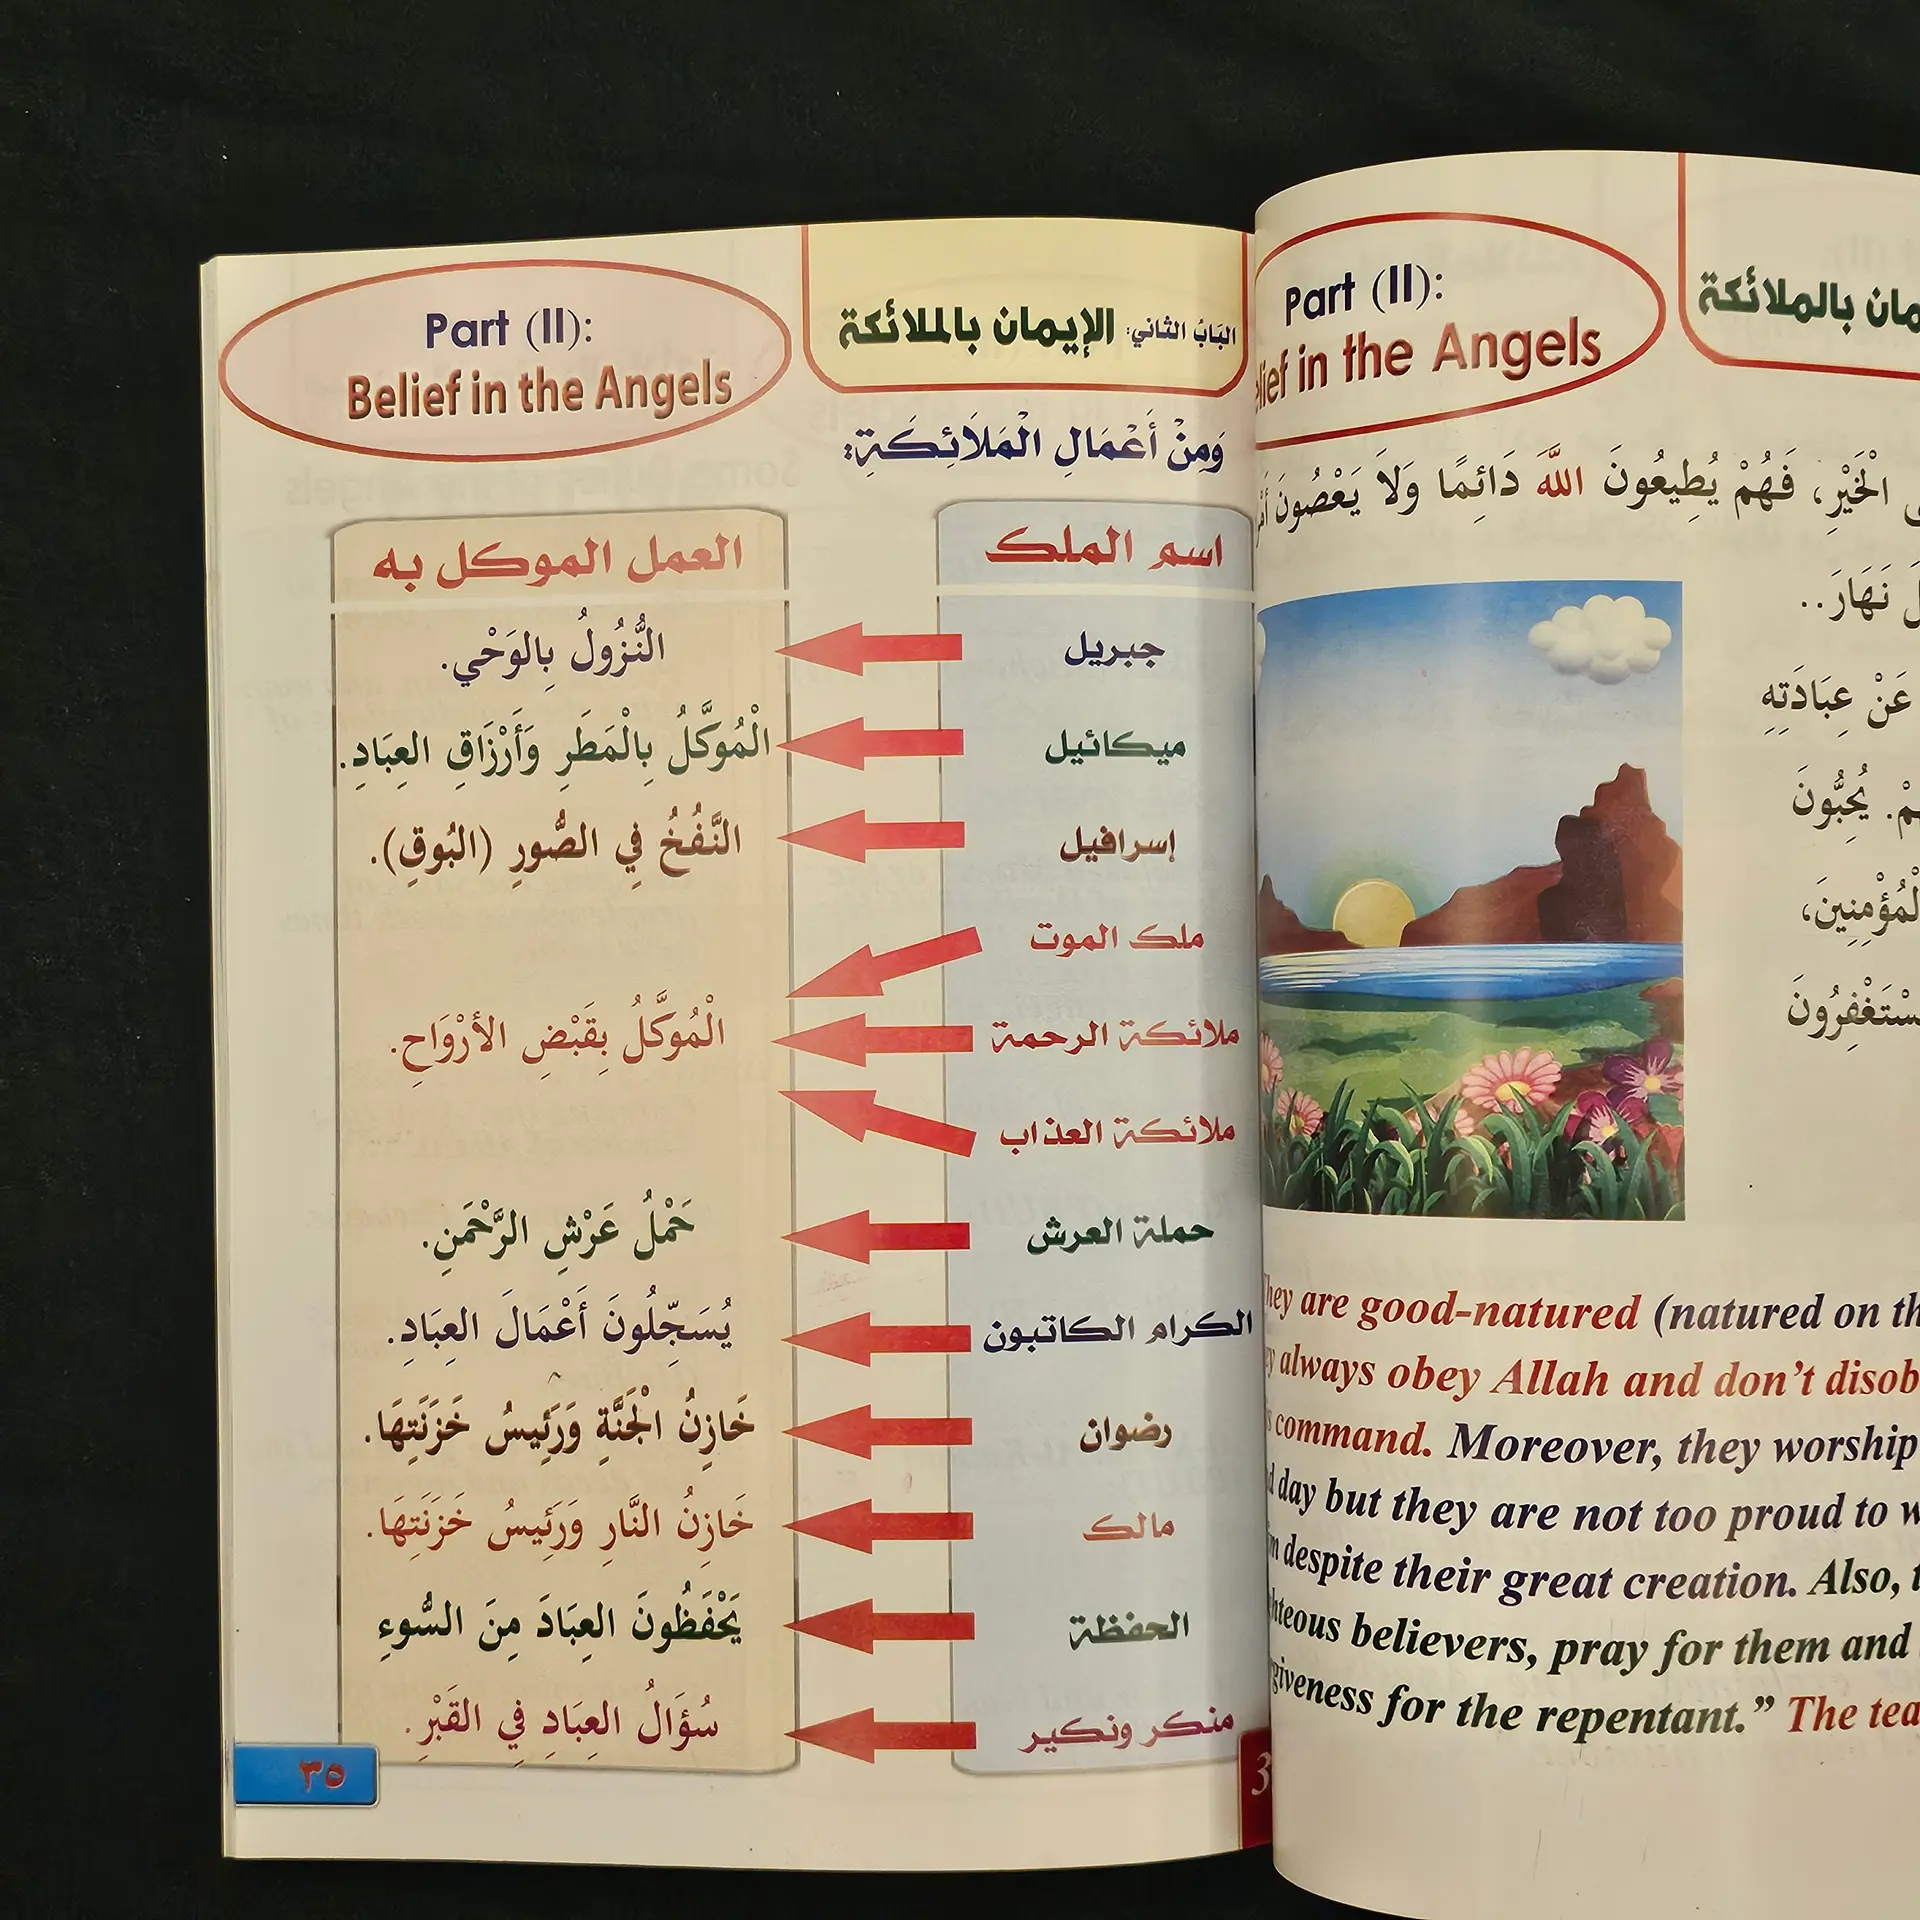 Part (II):
Belief in the Angels
البَابُ الثاني: الإيمان بالملائكة
وَمِنْ أَعْمَالِ الْمَلَائِكَةِ:
اسم الملك
العمل الموكل به
جبريل
النُّزُولُ بِالوَحْيِ.
ميكائيل
الْمُوَكَّلُ بِالْمَطَرِ وَأَرْزَاقِ العِبَادِ.
إسرافيل
النَّفْخُ فِي الصُّورِ (البُوقِ).
ملك الموت
ملائكة الرحمة
ملائكة العذاب
الْمُوَكَّلُ بِقَبْضِ الأرْوَاحِ.
حملة العرش
حَمْلُ عَرْشِ الرَّحْمَنِ.
الكرام الكاتبون
يُسَجِّلُونَ أَعْمَالَ العِبَادِ.
رضوان
خَازِنُ الْجَنَّةِ وَرَئِيسُ خَزَنَتِهَا.
مالك
خَازِنُ النَّارِ وَرَئِيسُ خَزَنَتِهَا.
الحفظة
يَحْفَظُونَ العِبَادَ مِنَ السُّوءِ
منكر ونكير
سُؤَالُ العِبَادِ فِي القَبْرِ.
٣٥
3
Part (II):
in the Angels
بالملائكة
الْخَيْرِ، فَهُمْ يُطِيعُونَ اللَّهَ دَائِمًا وَلَا يَعْصُونَ
نَهَارَ..
عَنْ عِبَادَتِهِ
يُحِبُّونَ
are good-natured (natured on
always obey Allah and don't
command. Moreover, they worship
day but they are not too proud to
despite their great creation. Also,
believers, pray for them and
for the repentant." The